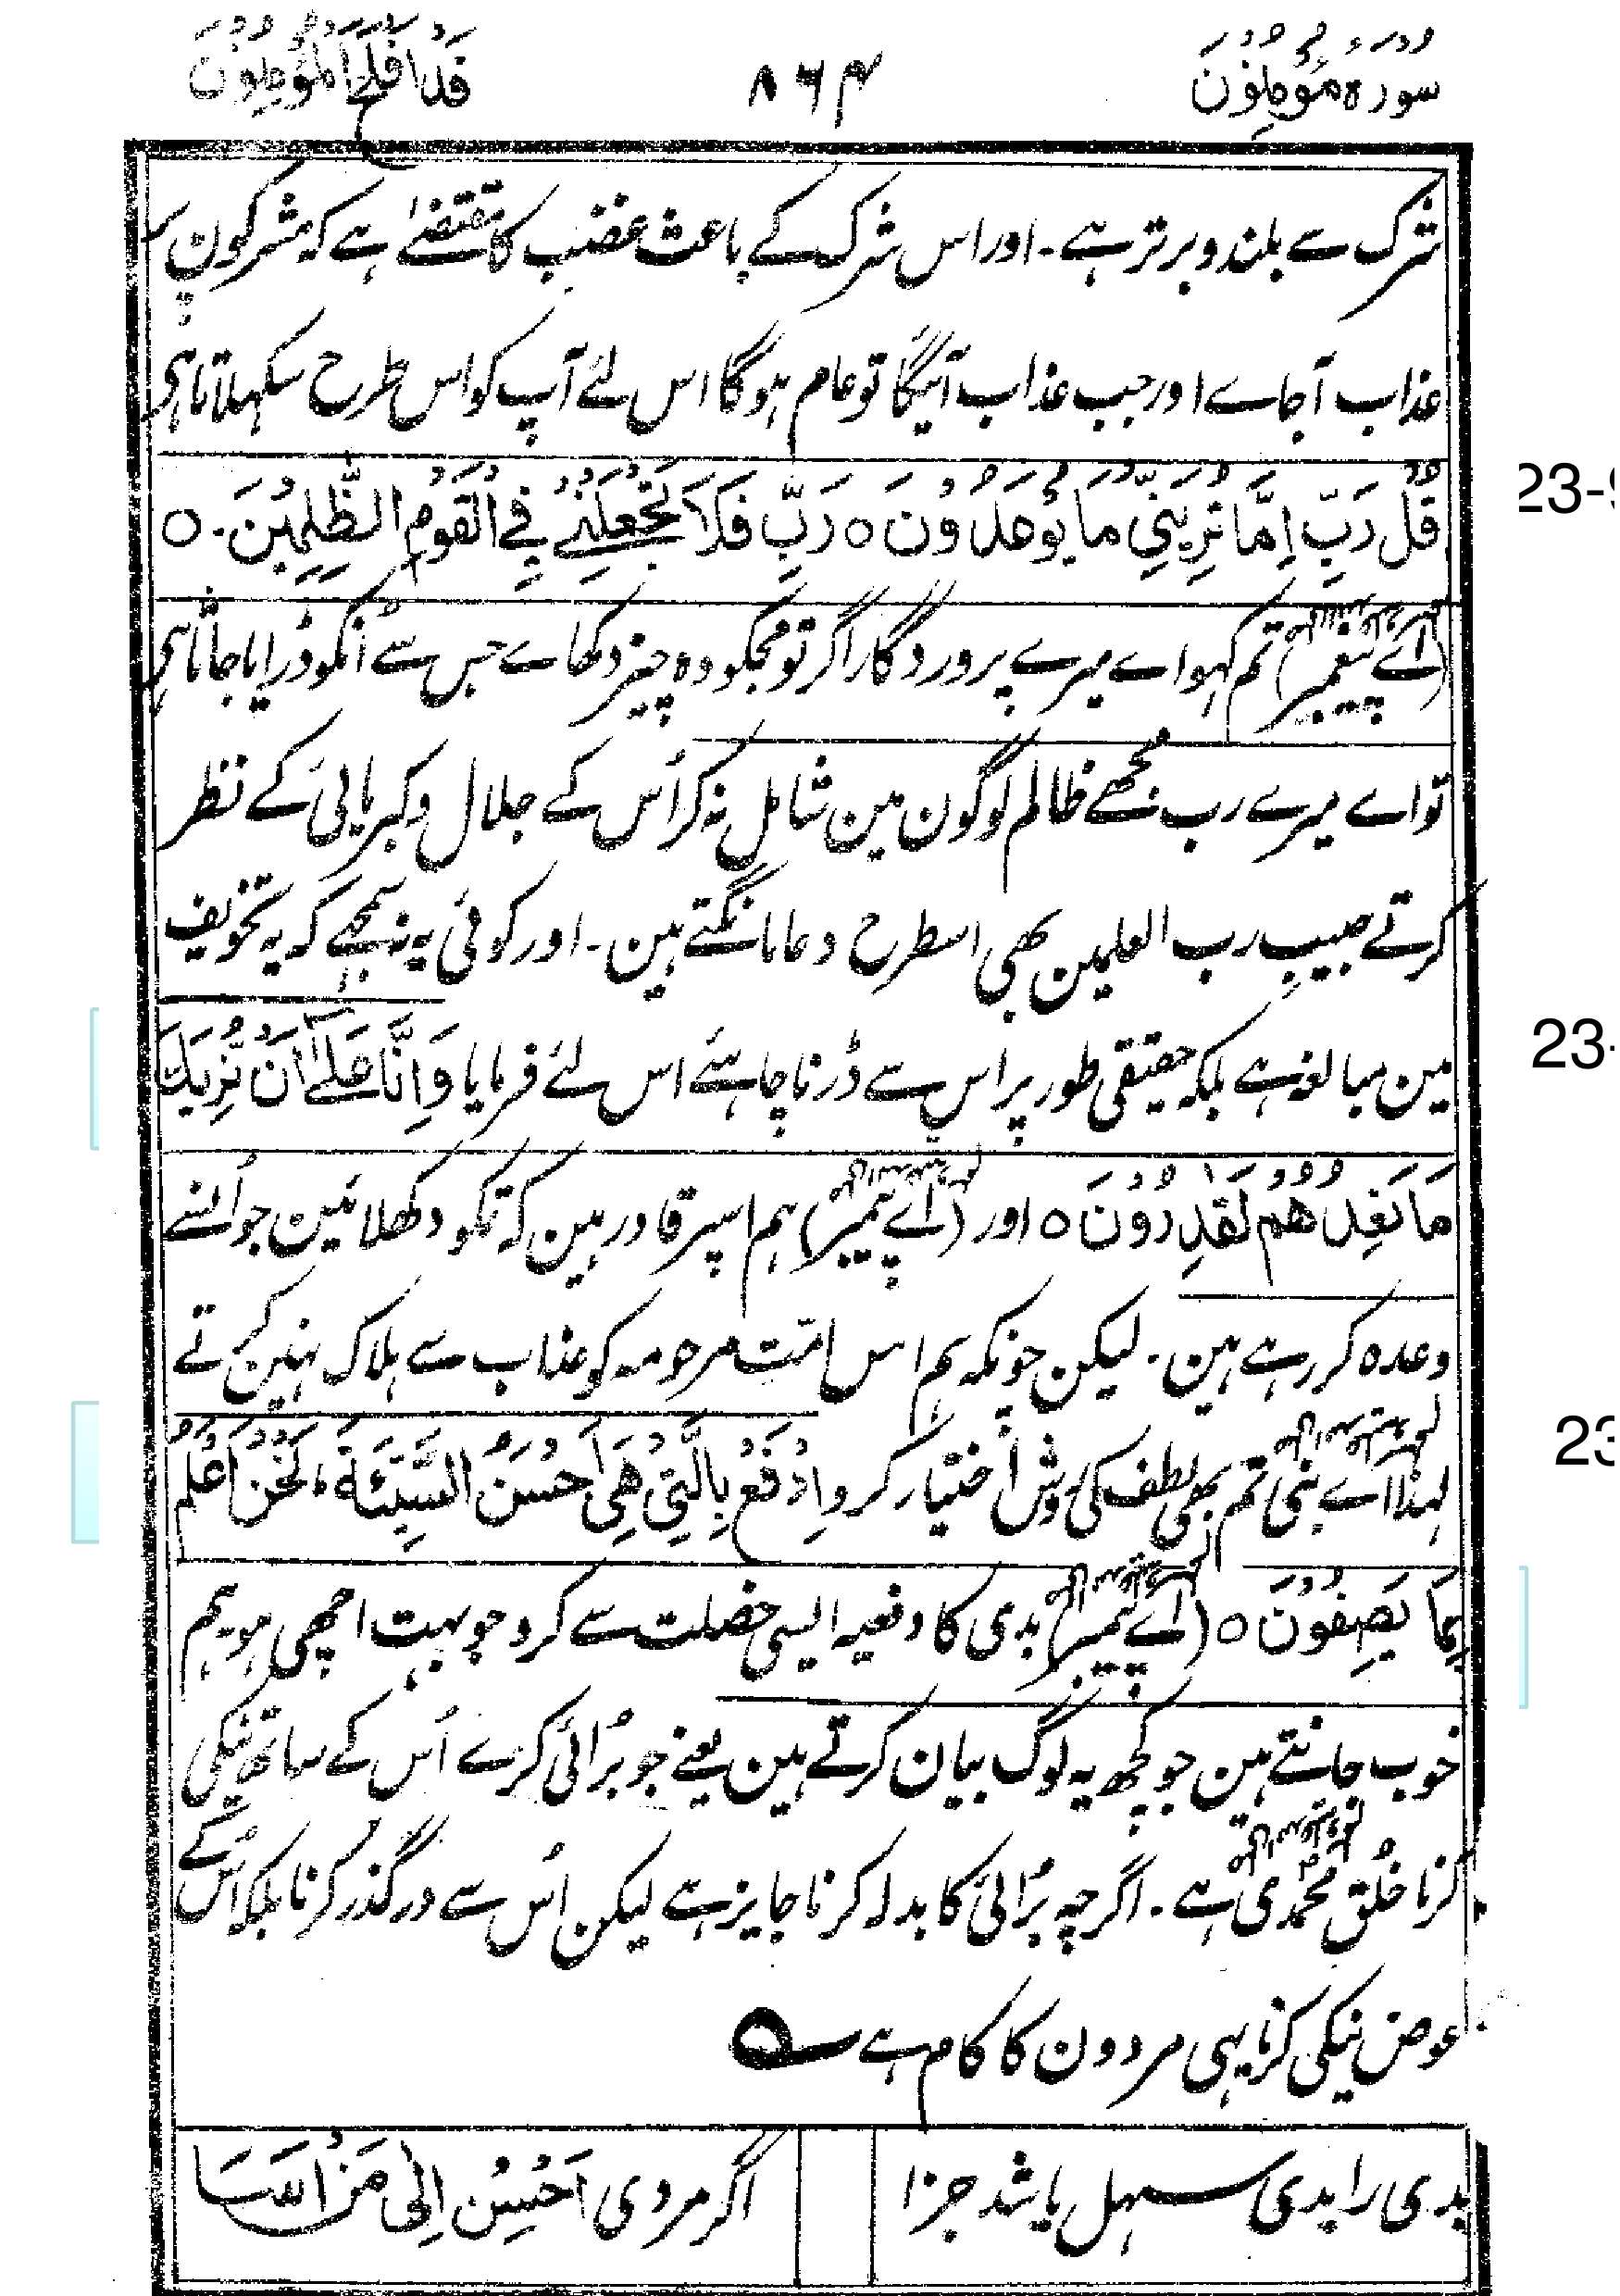 سورہ مُؤمِنُوْنَ ۸۶۴ قَدْاَفْلَحَ الْمُؤْمِنُوْنَ
شرک سے بلند و برتر ہے۔ اور اس شرک کے باعث غضب کا مقتضےٰ ہے کہ مشرکون پر
عذاب آجاے اور جب عذاب آئیگا تو عام ہوگا اس لئے آپ کو اس طرح سکہلاتا ہی
قُلْ رَبِّ اِمَّا تُرِیَنِّیْ مَا یُوْعَدُوْنَ ۝ رَبِّ فَلَا تَجْعَلْنِیْ فِی الْقَوْمِ الظّٰلِمِیْنَ ۝
23-9
(اے پیغمبر) تم کہو اے میرے پروردگار اگر تو مجکو وہ چیز دکھاے جس سے انکو ڈرایا جاتا ہی
تو اے میرے رب مُجھے ظالم لوگون مین شامل نہ کر اُس کے جلال و کبریائی کے نظر
کرتے حبیبِ رب العٰلمین بھی اسطرح دعا مانگتے ہین۔ اور کوئی یہ نہ سمجھے کہ یہ تخویف
مین مبالغہ ہے بلکہ حقیقی طور پر اس سے ڈرنا چاہئے اس لئے فرمایا وَاِنَّا عَلٰٓی اَنْ نُّرِیَكَ
23-
مَا نَعِدُهُمْ لَقٰدِرُوْنَ ۝ اور (اے پیمبر) ہم اسپر قادر ہین کہ تمکو دکھلائین جو اُنسے
وعدہ کر رہے ہین۔ لیکن چونکہ ہم اس امّت مرحومہ کو عذاب سے ہلاک نہین کرتے
لہذا اے نبی تم بھی لطف کی روش اختیار کرو اِدْفَعْ بِالَّتِیْ هِیَ اَحْسَنُ السَّیِّئَةَ ؕ نَحْنُ اَعْلَمُ
23
بِمَا یَصِفُوْنَ ۝ (اے پیمبر) بدی کا دفعیہ ایسی خصلت سے کرو جو بہت اچھی ہو۔ ہم
خوب جانتے ہین جو کچھ یہ لوگ بیان کرتے ہین یعنے جو بُرائی کرے اُس کے ساتھ نیکی
کرنا خُلق محمدی ہے۔ اگرچہ بُرائی کا بدلہ کرنا جایز ہے لیکن اُس سے درگذر کرنا بلکہ اُس کے
عوض نیکی کرنا یہی مردون کا کام ہے ؎
بدی را بدی سہل باشد جزا اگر مردی اَحْسِنْ اِلٰی مَنْ اَسَا